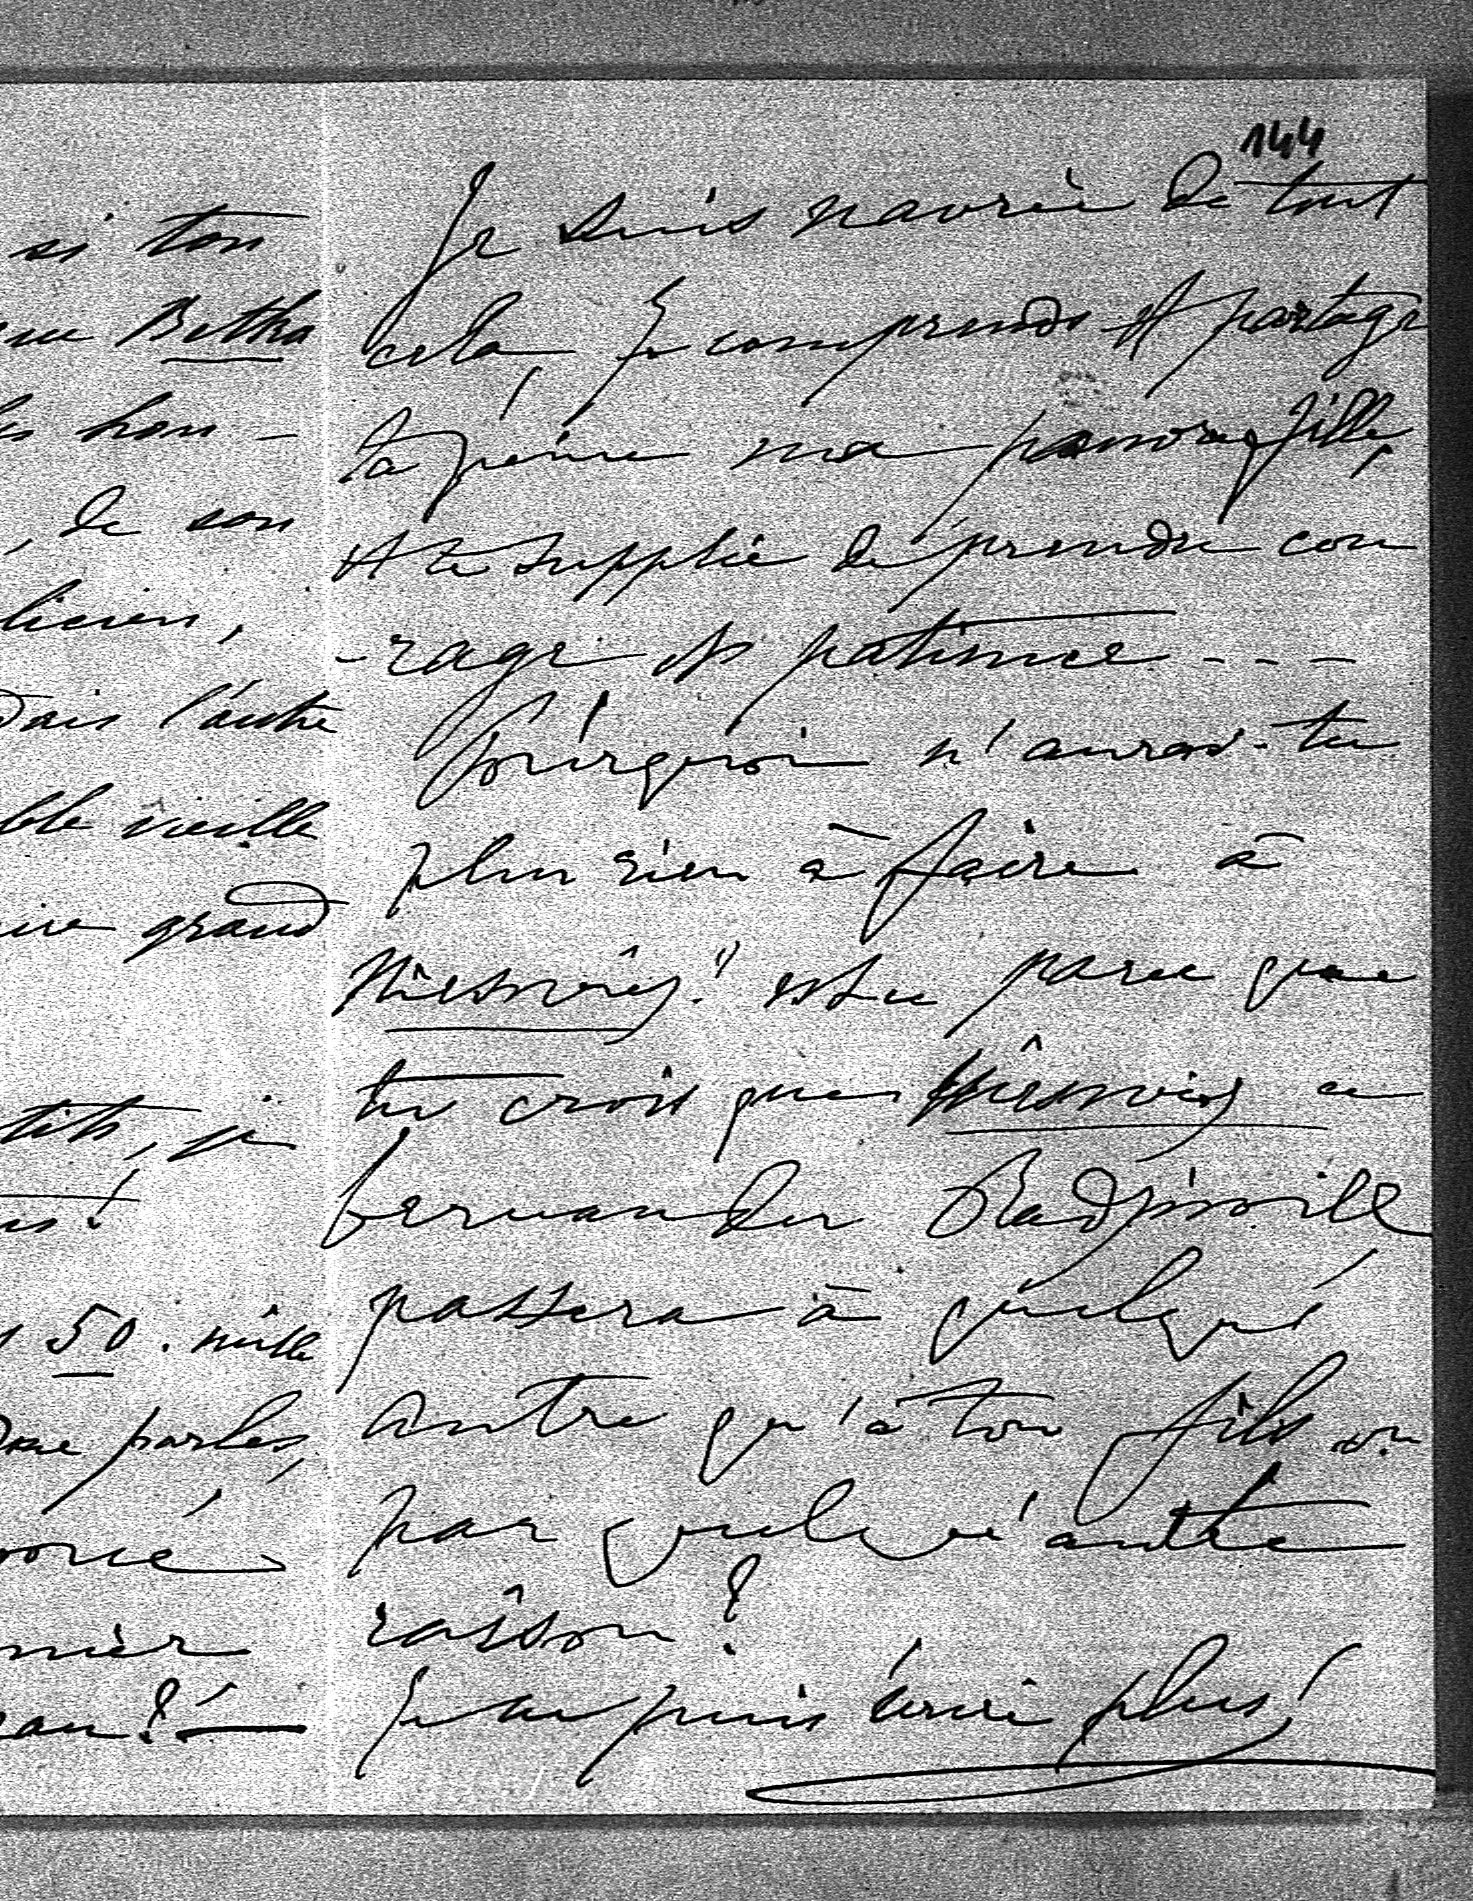 si ton
Betka
de son
licien,
dais l'autre
ble vieille
grand
tits, je
50. mille
parles,
mier
144
Je suis navrée de tout
cela Je comprends et partage
ta peine ma pauvre fille,
et te supplie de prendre cou
-rage et patience - - -
Pourquoi n'auras-tu
plus rien à faire à
Niesvies? est ce parce que
tu crois que Niesvies en
Fernandes Radziwill
passera à quelqu'
autre qu'à ton fils ou
par quelqu'autre
raison?
Je ne puis écrire plus!